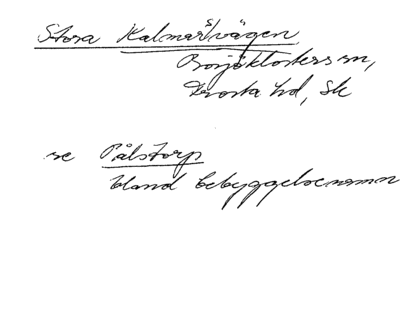 Stora Kalmarsvägen
Bosjöklosters sn,
Frosta hd, Sk
se Pålstorp
bland bebyggelsenamn